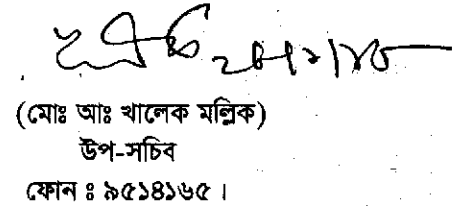 (মোঃ আঃ খালেক মল্লিক)
উপ-সচিব
ফোন ঃ ৯৫১৪১৬৫ ।